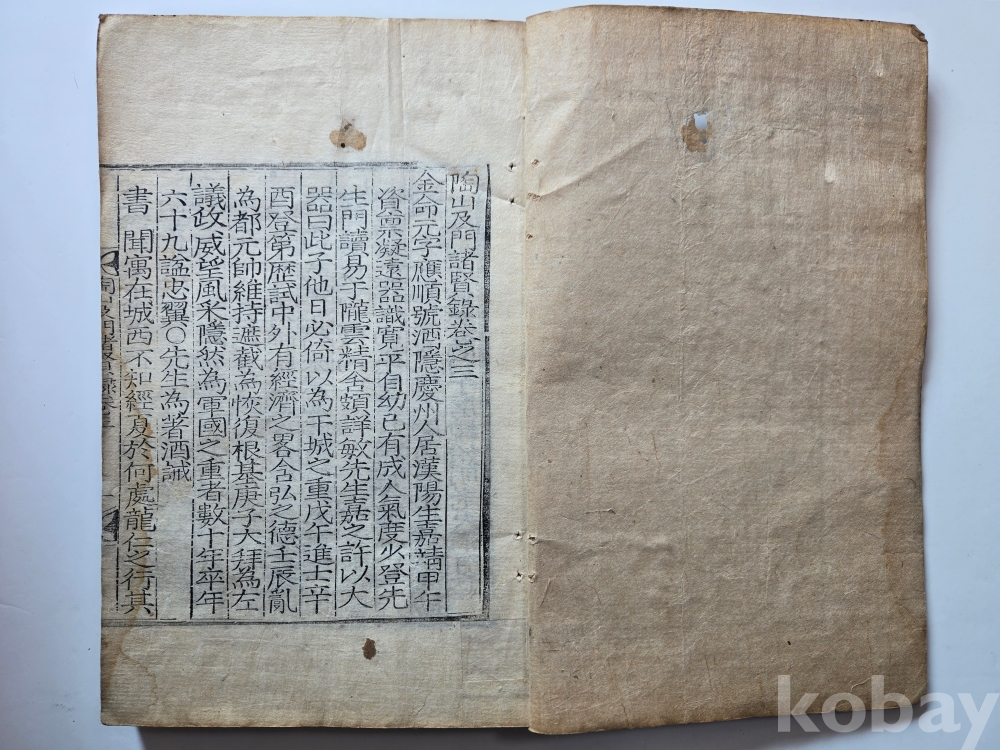 陶山及門諸賢錄卷之三
金命元字應順號酒隱慶州人居漢陽生嘉靖甲午
資稟凝遠器識寬平自幼已有成人氣度少登先
生門讀易于隴雲精舍頗詳敏先生嘉之許以大
器曰此子他日必倚以為干城之重戊午進士辛
酉登第歷試中外有經濟之畧含弘之德壬辰亂
為都元帥維持遮截為恢復根基庚子大拜為左
議政威望風采隱然為軍國之重者數十年卒年
六十九諡忠翼〇先生為著酒誡
書 聞寓在城西不知經夏於何處龍仁之行其
陶山及門諸賢錄卷三
kobay